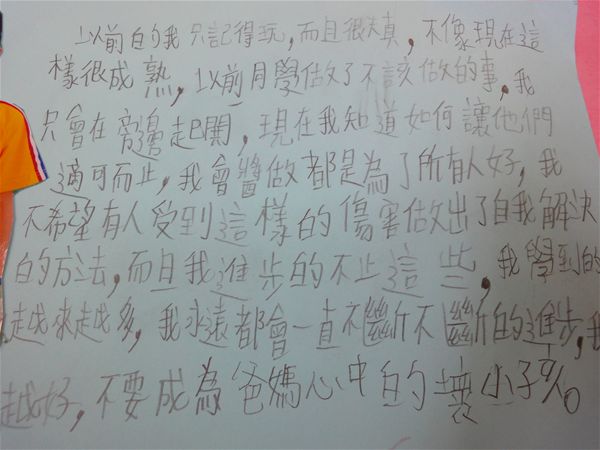 以前的我只記得玩，而且很天真，不像現在這
樣很成熟，以前同學做了不該做的事，我
只會在旁邊起鬨，現在我知道如何讓他們
適可而止，我會醬做都是為了所有人好，我
不希望有人受到這樣的傷害做出了自我解決
的方法，而且我進步的不止這些，我學到的
越來越多，我永遠都會一直不斷不斷的進步，我
越好，不要成為爸媽心中的壞小孩。